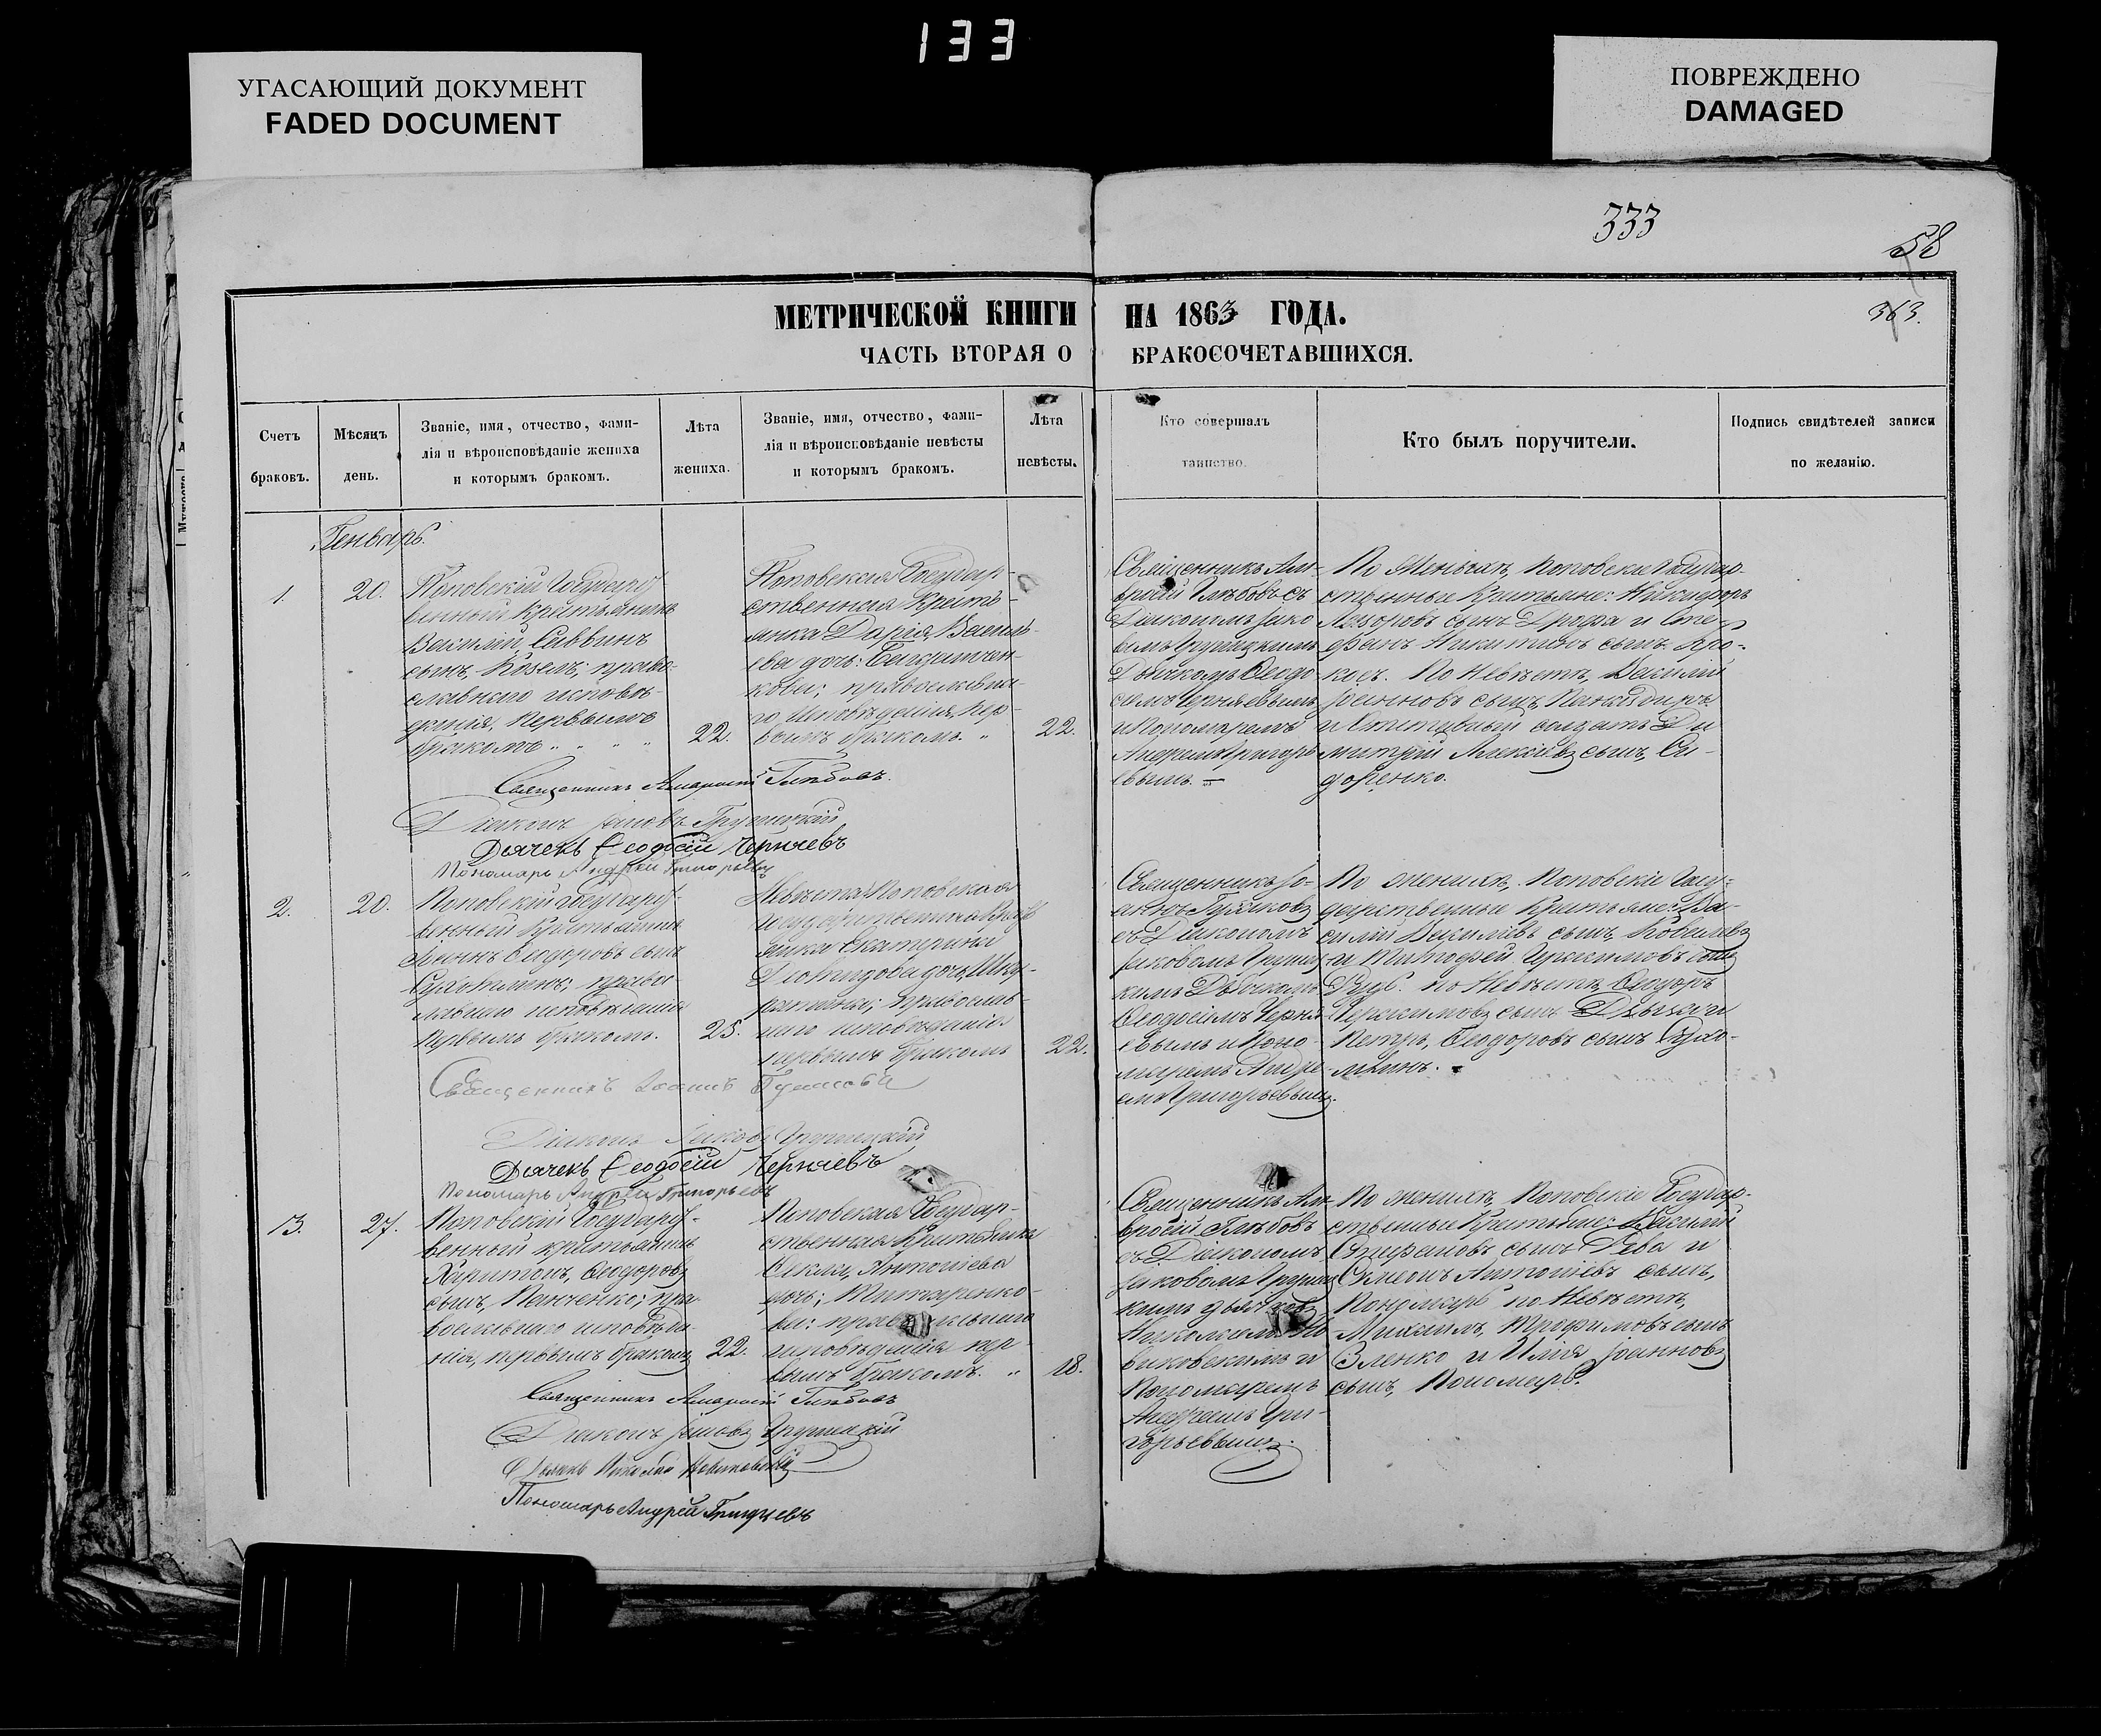 133
УГАСАЮЩИЙ ДОКУМЕНТ
FADED DOCUMENT
ПОВРЕЖДЕНО
DAMAGED
333
58
363.
МЕТРИЧЕСКОЙ КНИГИ НА 1863 ГОДА.
ЧАСТЬ ВТОРАЯ О БРАКОСОЧЕТАВШИХСЯ.
Счетъ
браковъ.
Мѣсяцъ
день.
Званіе, имя, отчество, фами-
лія и вѣроисповѣданіе жениха
и которымъ бракомъ.
Лѣта
жениха.
Званіе, имя, отчество, фами-
лія и вѣроисповѣданіе невѣсты
и которымъ бракомъ.
Лѣта
невѣсты.
Кто совершалъ
таинство.
Кто былъ поручители.
Подпись свидѣтелей записи
по желанію.
Генварь.
1.
20.
Поповскій Государст
венный Крестьянинъ
Василій, Саввинъ
сынъ, Козелъ; право-
славнаго исповѣ-
данія, первымъ
бракомъ
22.
Поповская Государ-
ственная Кресть-
янка Дарія, Василь-
ева дочь:
кова; православна-
го исповѣданія, пер-
вымъ бракомъ.
22.
Священникъ Ам-
вросій Глѣбовъ съ
Діакономъ Іако
вомъ Грушецкимъ
Дьячкомъ Ѳеодо
сіемъ Черняевымъ
и Пономаремъ
Андреемъ Григорь
евымъ.
По Женихѣ, Поповскіе Государ-
ственные Крестьяне: Никифоръ
Лазоревъ сынъ Дрофа и Сте-
фанъ Никитинъ сынъ
По Невѣстѣ, Василій
Іоанновъ сынъ
и Отставный солдатъ Ди
митрій Алексѣевъ сынъ, Си-
доренко.
Священникъ Амвросій Глѣбовъ.
Діаконъ Іаковъ Грушецкій
Дьячекъ Ѳеодосій Черняевъ
Пономарь Андрей Григорьевъ
2.
20.
Поповскій Государст-
венный Крестьянинъ
Ѳеодоровъ сынъ
Сухомлинъ; право-
славнаго исповѣданія
первымъ бракомъ.
25.
Невѣста Поповская
Государственная Кресть
янка Екатерина
дочь,
православ-
наго исповѣданія
первымъ бракомъ
22.
Священникъ Іо-
аннъ
съ Діакономъ
Іаковомъ Грушец-
кимъ Дьячкомъ
Ѳеодосіемъ Черня-
евымъ и Поно-
маремъ Андре
емъ Григорьевымъ.
По женихѣ, Поповскіе Госу-
дарственные Крестьяне: Ва-
силій Васильевъ сынъ,
и Тимофей Герасимовъ сынъ
По Невѣстѣ Ѳеодоръ
Герасимовъ сынъ
Петръ, Ѳеодоровъ сынъ Сухо-
млинъ.
Священникъ Іоаннъ
Діаконъ Іаковъ Грушецкій
Дьячекъ Ѳеодосій Черняевъ
Пономарь Андрей Григорьевъ
3.
27.
Поповскій Государст-
венный крестьянинъ
Харитонъ, Ѳеодоровъ
сынъ, Панченко; пра-
вославнаго исповѣда-
нія, первымъ бракомъ
22.
Поповская Государ-
ственная Крестьянка
Ѳекла, Антоніева
дочь; Титаренко-
ва: православнаго
исповѣданія пер-
вымъ бракомъ.
18.
Священникъ Ам-
вросій Глѣбовъ
съ Діакономъ
Іаковомъ Грушец
кимъ дьячкомъ
Николаемъ Но
виковскимъ и
Пономаремъ
Андреемъ Гри-
горьевымъ.
По женихѣ, Поповскіе Государ-
ственные Крестьяне: Василій
Стефановъ сынъ Рева и
Симеонъ Антоніевъ сынъ,
Пономарь по Невѣстѣ,
Михаилъ, Трофимовъ сынъ
Зленко и Илія Іоанновъ
сынъ, Пономарь.
Священникъ Амвросій Глѣбовъ
Діаконъ Іаковъ Грушецкій
Дьячекъ Николай Новиковскій
Пономарь Андрей Григорьевъ